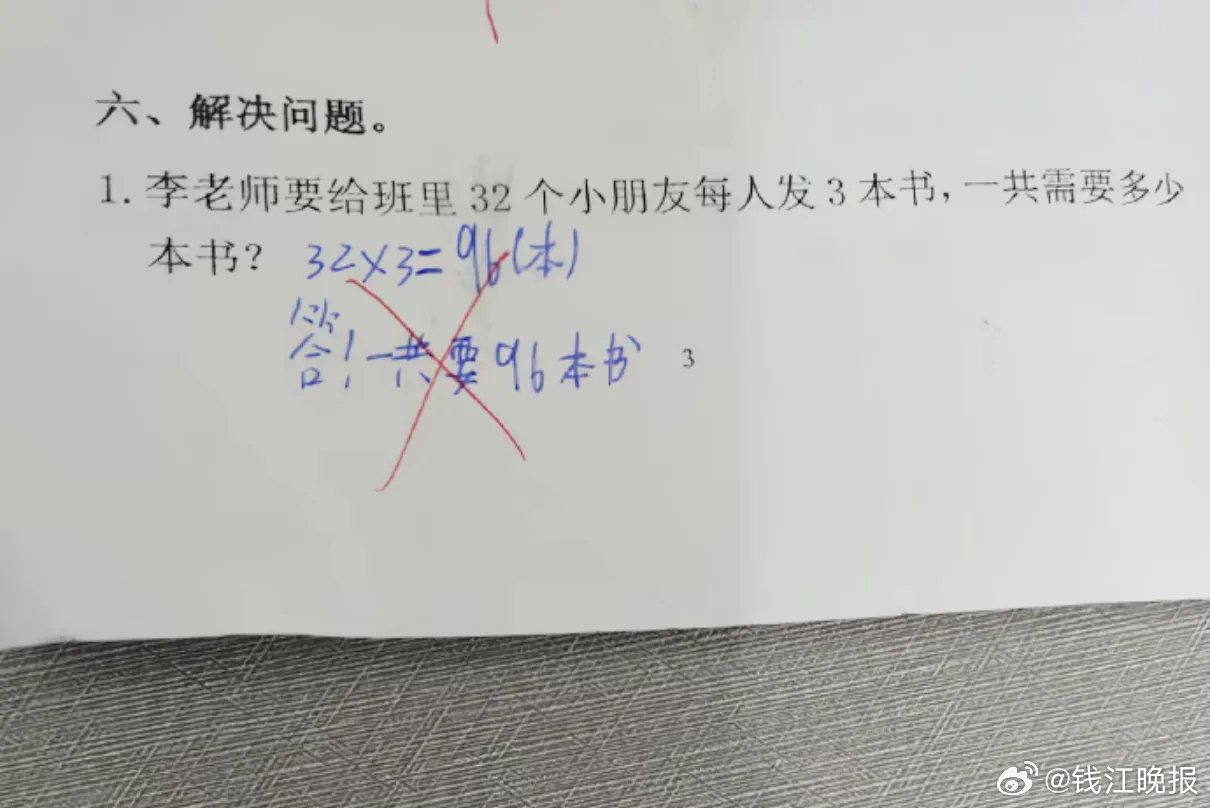 六、解决问题。
1. 李老师要给班里 32 个小朋友每人发 3 本书，一共需要多少
本书？ 32×3=96(本)
答！一共要96本书 3
@钱江晚报